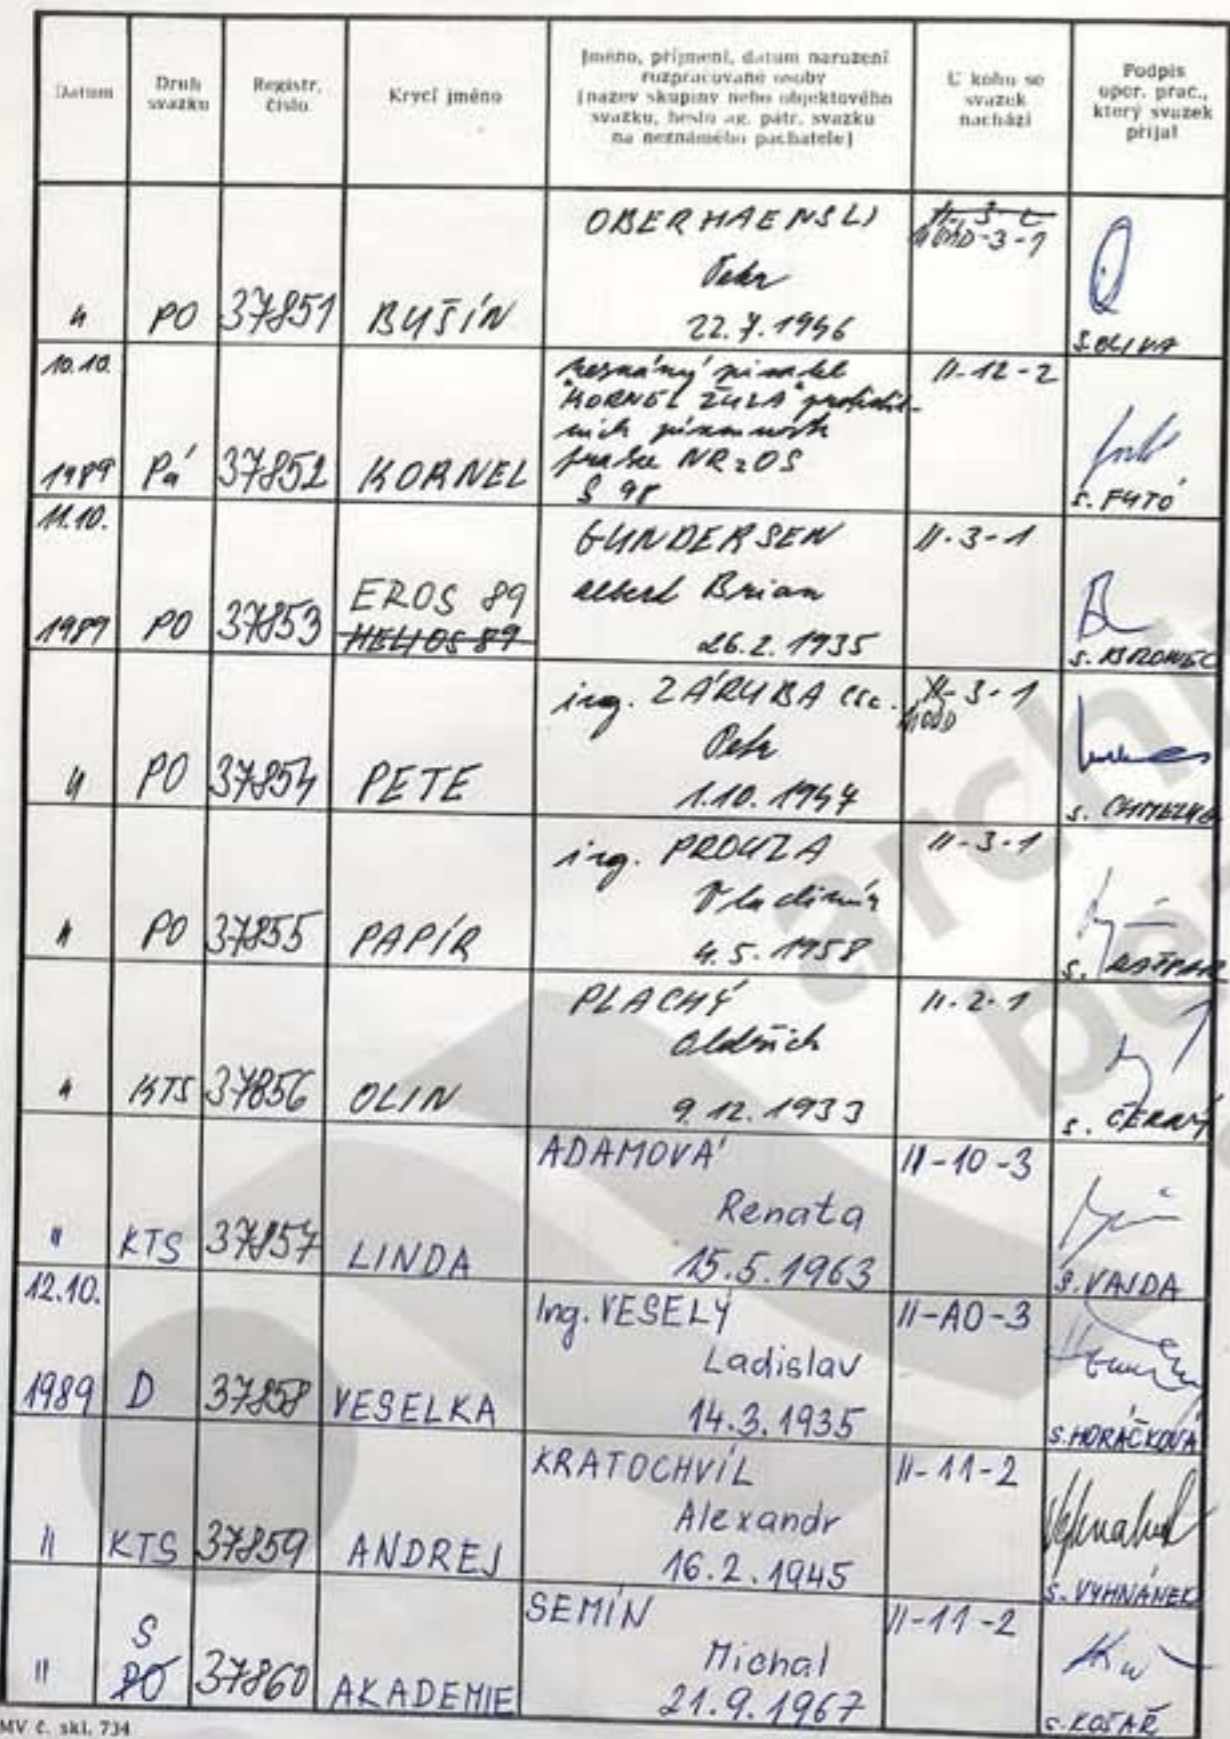 Datum
Druh
svazku
Registr.
číslo
Krycí jméno
Jméno, příjmení, datum narození
rozpracované osoby
(název skupiny nebo objektového
svazku, heslo ag. pátr. svazku
na neznámého pachatele)
U koho se
svazek
nachází
Podpis
oper. prac.,
který svazek
přijal
OBERHAENSLI
Petr
22.7.1946
" PO 37851 BUŠÍN
-3-1
S. OLIVA
10.10.
1989 Pá 37852 KORNEL
neznámý pisatel
"KORNEL ŽULA"
NR z OS
§ 98
II-12-2
S. FUTÓ
11.10.
1989 PO 37853
EROS 89
HELIOS 89
GUNDERSEN
Albert Brian
26.2.1935
II-3-1
S.
" PO 37854 PETE
ing. ZÁRUBA CSc.
Petr
1.10.1947
-3-1
S.
" PO 37855 PAPÍR
ing. PROUZA
Vladimír
4.5.1958
II-3-1
S.
" KTS 37856 OLIN
PLACHÝ
Oldřich
9.12.1933
II-2-1
S. ČERNÝ
" KTS 37857 LINDA
ADAMOVÁ
Renata
15.5.1963
II-10-3
S. VAJDA
12.10.
1989 D 37858 VESELKA
Ing. VESELÝ
Ladislav
14.3.1935
II-AO-3
S. HORÁČKOVÁ
" KTS 37859 ANDREJ
KRATOCHVÍL
Alexandr
16.2.1945
II-11-2
S. VYHNÁNEK
S
" PO 37860 AKADEMIE
SEMÍN
Michal
21.9.1967
II-11-2
S. KOŠAŘ
MV č. skl. 734